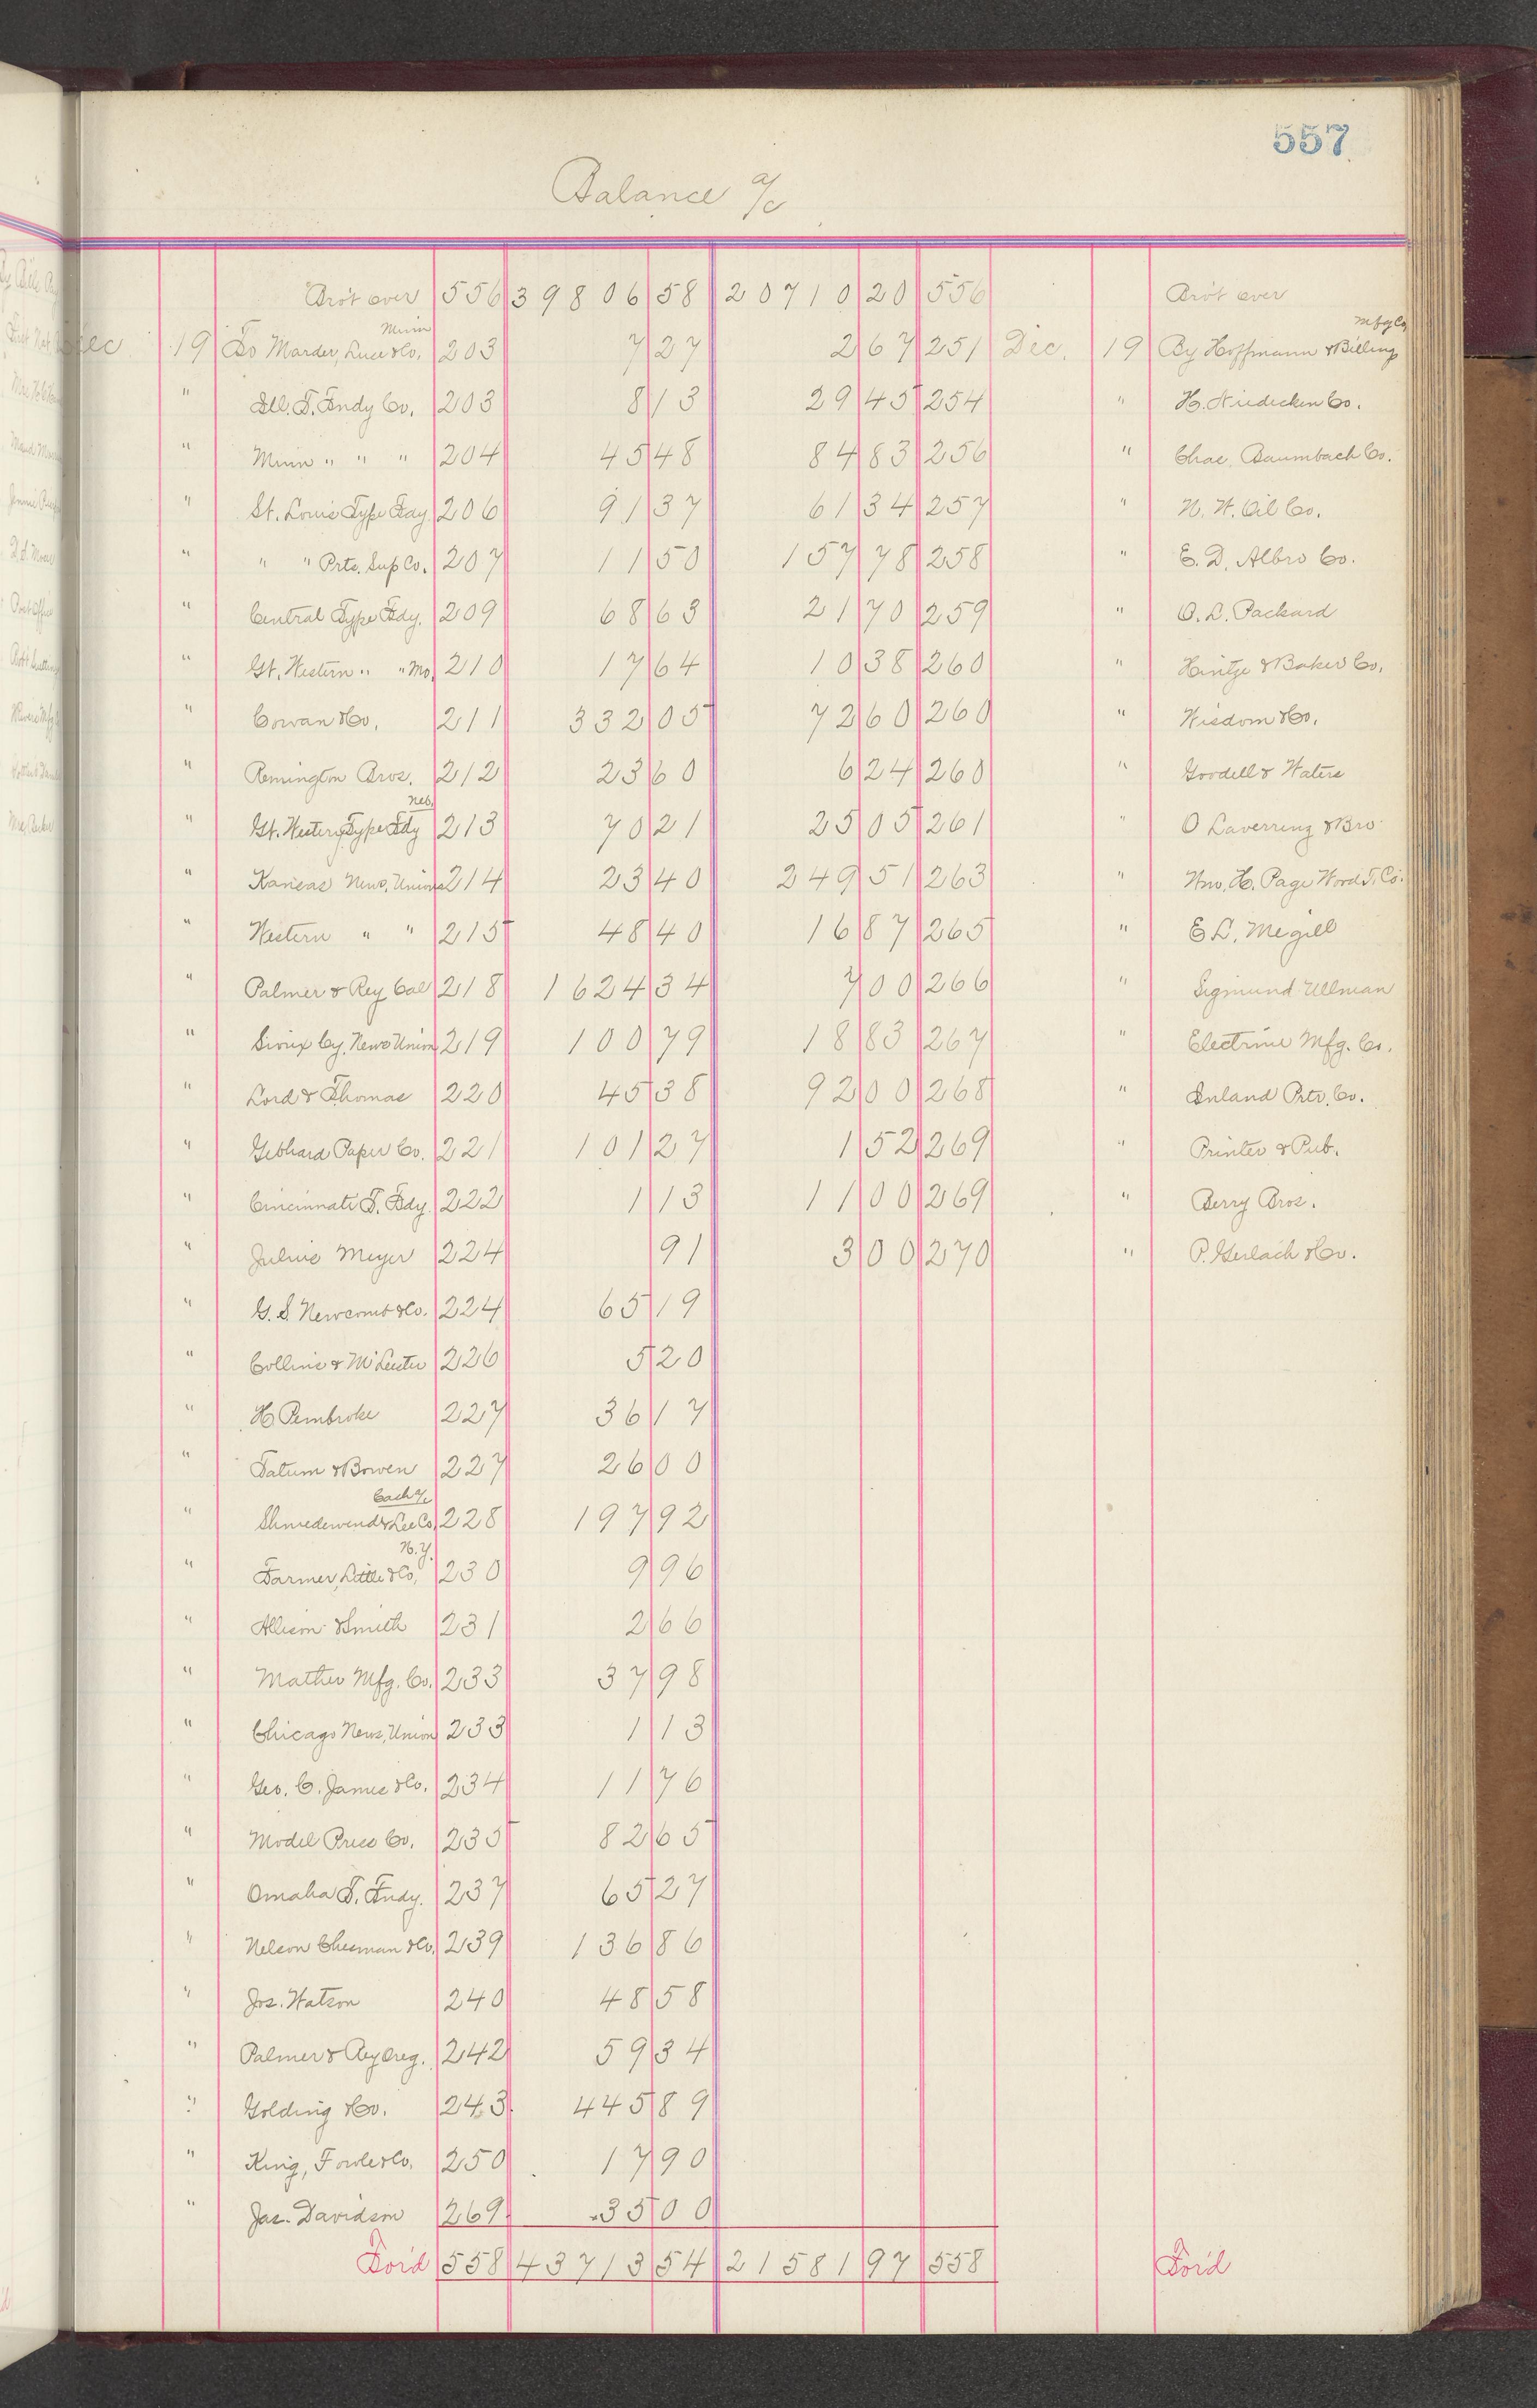 557
Balance a/c
Bro't over 556 39806 58 20710 20 556 Bro't over
Minn Mfg Co,
Dec 19 To Marder, Luce & Co, 203 7 27 2 67 251 Dec. 19 By Hoffmann & Billings
" Ill. T. Fndy Co. 203 8 13 29 45 254 " H. Niedecken Co.
" Minn " " " 204 45 48 84 83 256 " Chas. Baumbach Co.
" St. Louis Type Fdy. 206 91 37 61 34 257 " N. W. Oil Co.
" " " Prts. Sup Co. 207 11 50 157 78 258 " E. D. Albro Co.
" Central Type Fdy. 209 68 63 21 70 259 " O. L. Packard
" Gt. Western " " Mo. 210 17 64 10 38 260 " Hintze & Baker Co.
" Cowan & Co. 211 332 05 72 60 260 " Wisdom & Co.
" Remington Bros. 212 23 60 6 24 260 " Goodell & Waters
Neb.
" Gt. Western Type Fdy 213 70 21 25 05 261 " O Laverrenz & Bro
" Kansas News. Union 214 23 40 249 51 263 " Wm. H. Page Wood T. Co.
" Western " " 215 48 40 16 87 265 " E L. Megill
" Palmer & Rey Cal 218 1624 34 7 00 266 " Sigmund Ullman
" Sioux Cy. News Union 219 100 79 18 83 267 " Electrine Mfg. Co.
" Lord & Thomas 220 45 38 92 00 268 " Inland Prtr. Co.
" Gebhard Paper Co. 221 101 27 1 52 269 " Printer & Pub.
" Cincinnati T. Fdy. 222 1 13 11 00 269 " Berry Bros.
" Julius Meyer 224 91 3 00 270 " P. Gerlach & Co.
" G. S. Newcomb & Co. 224 65 19
" Collins & McLeester 226 5 20
" H Pembroke 227 36 17
" Tatum & Bowen 227 26 00
Cash a/c
" Shniedewend & Lee Co. 228 197 92
N. Y.
" Farmer, Little & Co, 230 9 96
" Allison & Smith 231 2 66
" Mather Mfg. Co. 233 37 98
" Chicago News, Union 233 1 13
" Geo. C. James & Co. 234 11 76
" Model Press Co. 235 82 65
" Omaha T. Fndy. 237 65 27
" Nelson Chesman & Co. 239 136 86
" Jos. Watson 240 48 58
" Palmer & Rey Oreg. 242 59 34
" Golding & Co. 243 445 89
" King, Fowle & Co. 250 17 90
" Jas. Davidson 269 35 00
For'd 558 43713 54 21581 97 558 For'd